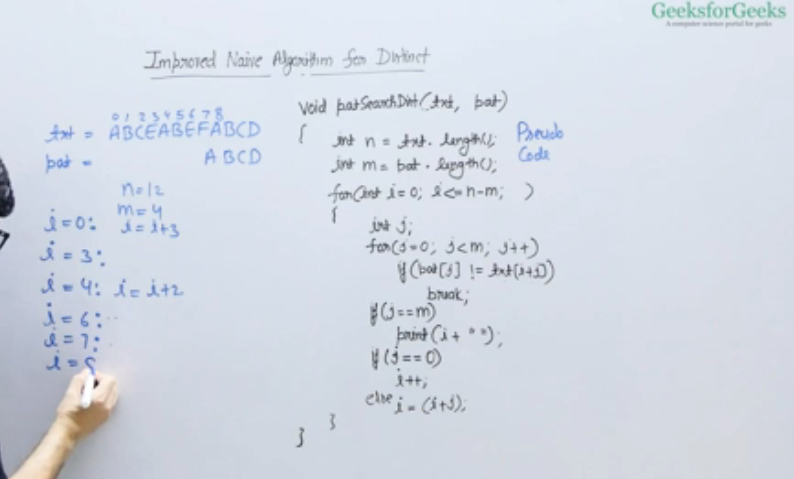 GeeksforGeeks
A computer science portal for geeks
Improved Naive Algorithm for Distinct
0 1 2 3 4 5 6 7 8
txt = ABCEABEFABCD
pat = ABCD
n=12
m=4
i=0: i=i+3
i=3:
i=4: i=i+2
i=6:..
i=7:.
i=8
void patSearchDist(txt, pat)
{
int n = txt.length();
int m = pat.length();
Pseudo
Code
for(int i=0; i<=n-m; )
{
int j;
for(j=0; j<m; j++)
if(pat[j] != txt[i+j])
break;
if(j==m)
print(i + " ");
if(j==0)
i++;
else i = (i+j);
}
}